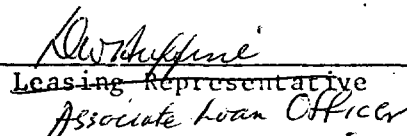 Leasing Representative
Associate Loan Officer